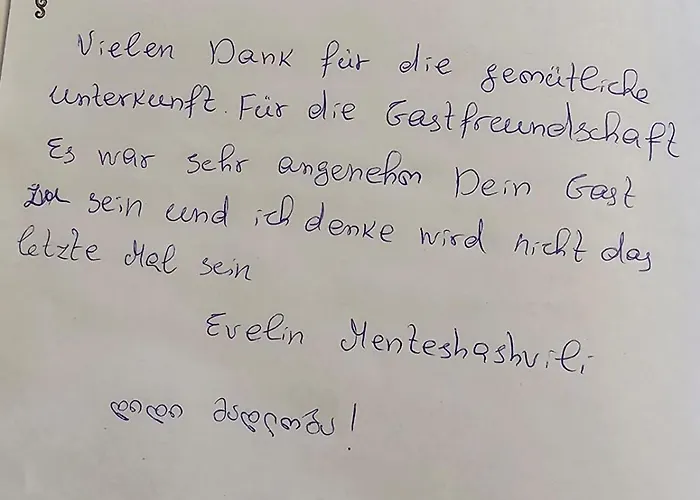 Vielen Dank für die gemütliche
Unterkunft. Für die Gastfreundschaft
Es war sehr angenehm Dein Gast
zu sein und ich denke wird nicht das
letzte Mal sein
Evelin Menteshashvili
დიდი მადლობა!